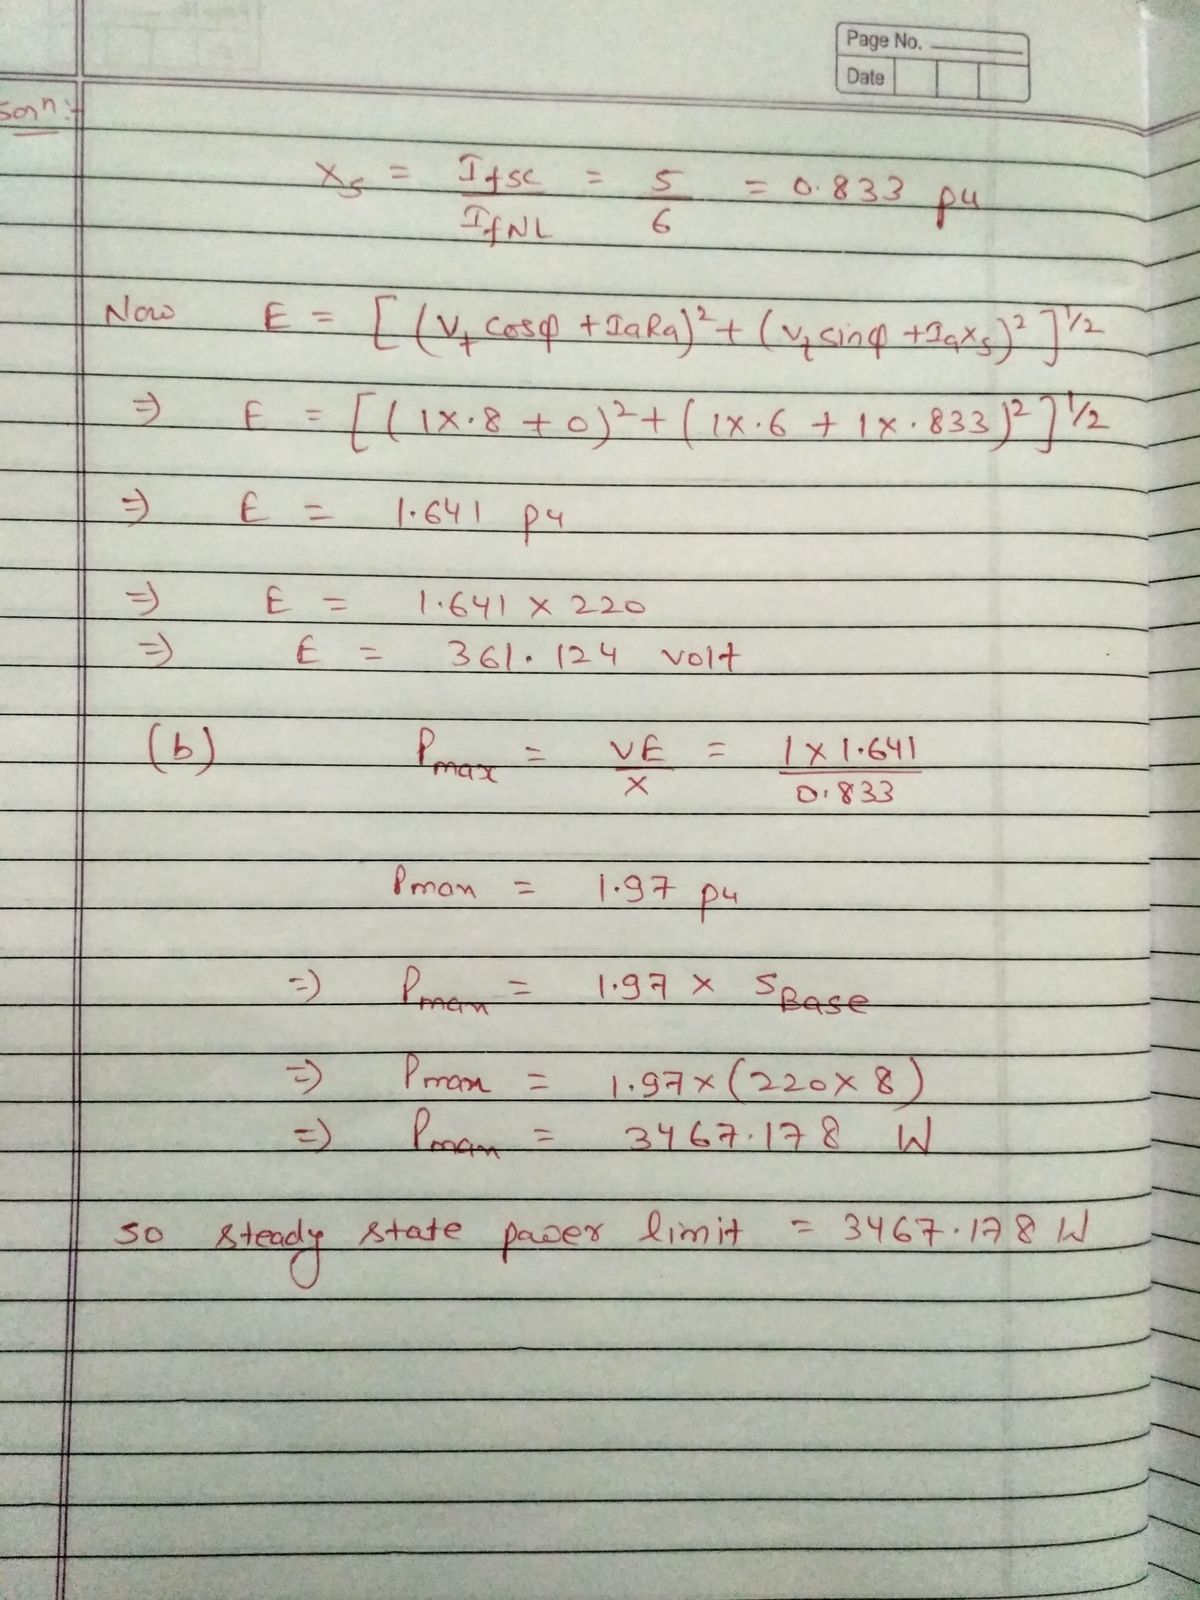 Page No.
Date
Sol^n:-
X_s = I_fSC / I_fNL = 5/6 = 0.833 pu
Now E = [(V_t cosφ + I_aR_a)² + (V_t sinφ + I_aX_s)²]^1/2
⇒ E = [(1×.8 + 0)² + (1×.6 + 1×.833)²]^1/2
⇒ E = 1.641 pu
⇒ E = 1.641 × 220
⇒ E = 361.124 volt
(b) P_max = VE/X = 1×1.641/0.833
P_max = 1.97 pu
⇒ P_max = 1.97 × S_Base
⇒ P_max = 1.97×(220×8)
⇒ P_max = 3467.178 W
so steady state power limit = 3467.178 W